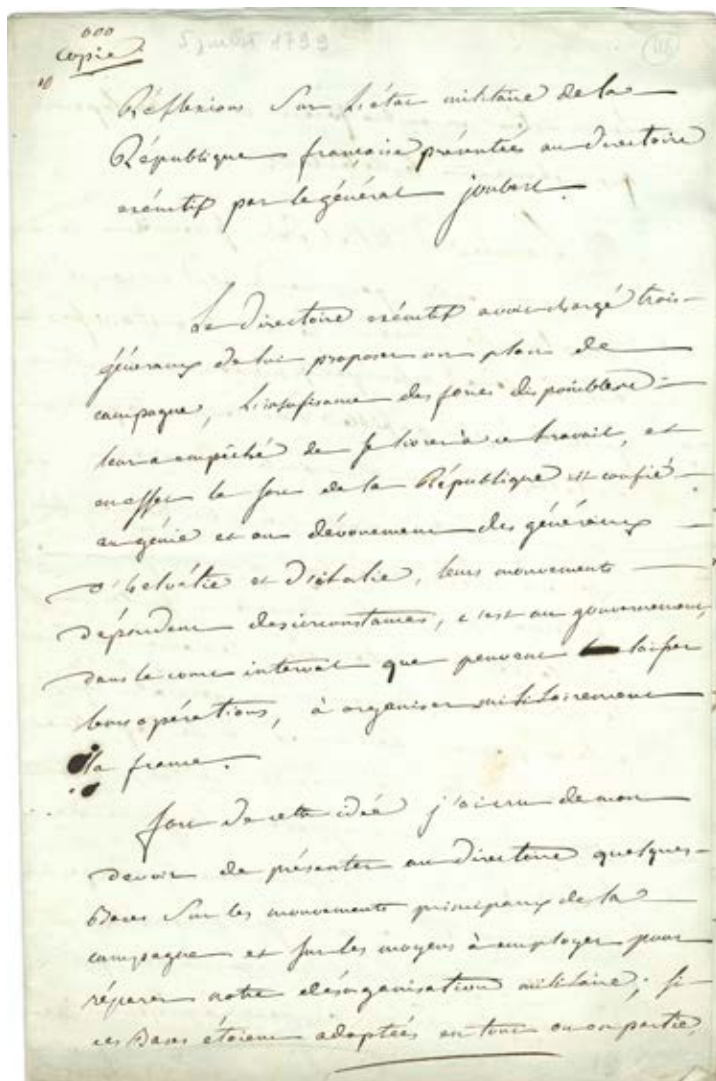 Copie
5 juillet 1799
Réflexions Sur L'état militaire de la
République française présentées au directoire
exécutif par le général joubert.
Le Directoire exécutif avoit chargé trois
généraux de lui proposer un plan de
campagne, L'insufisance des forces disponibles
leur a empêché de se livrer à ce travail, et
en effet le sort de la République est confié
au génie et au dévouement des généraux
d'helvétie et d'italie, leurs mouvements
dépendent des circonstances, c'est au gouvernement,
dans le court interval que peuvent laisser
leurs opérations, à organiser militairement
la france.
fort de cette idée j'ai cru de mon
devoir de présenter au directoire quelques
Bases Sur les mouvements principaux de la
campagne et sur les moyens à employer pour
réparer notre désorganisation militaire; si
ces Bases étoient adoptées en tout ou en partie,